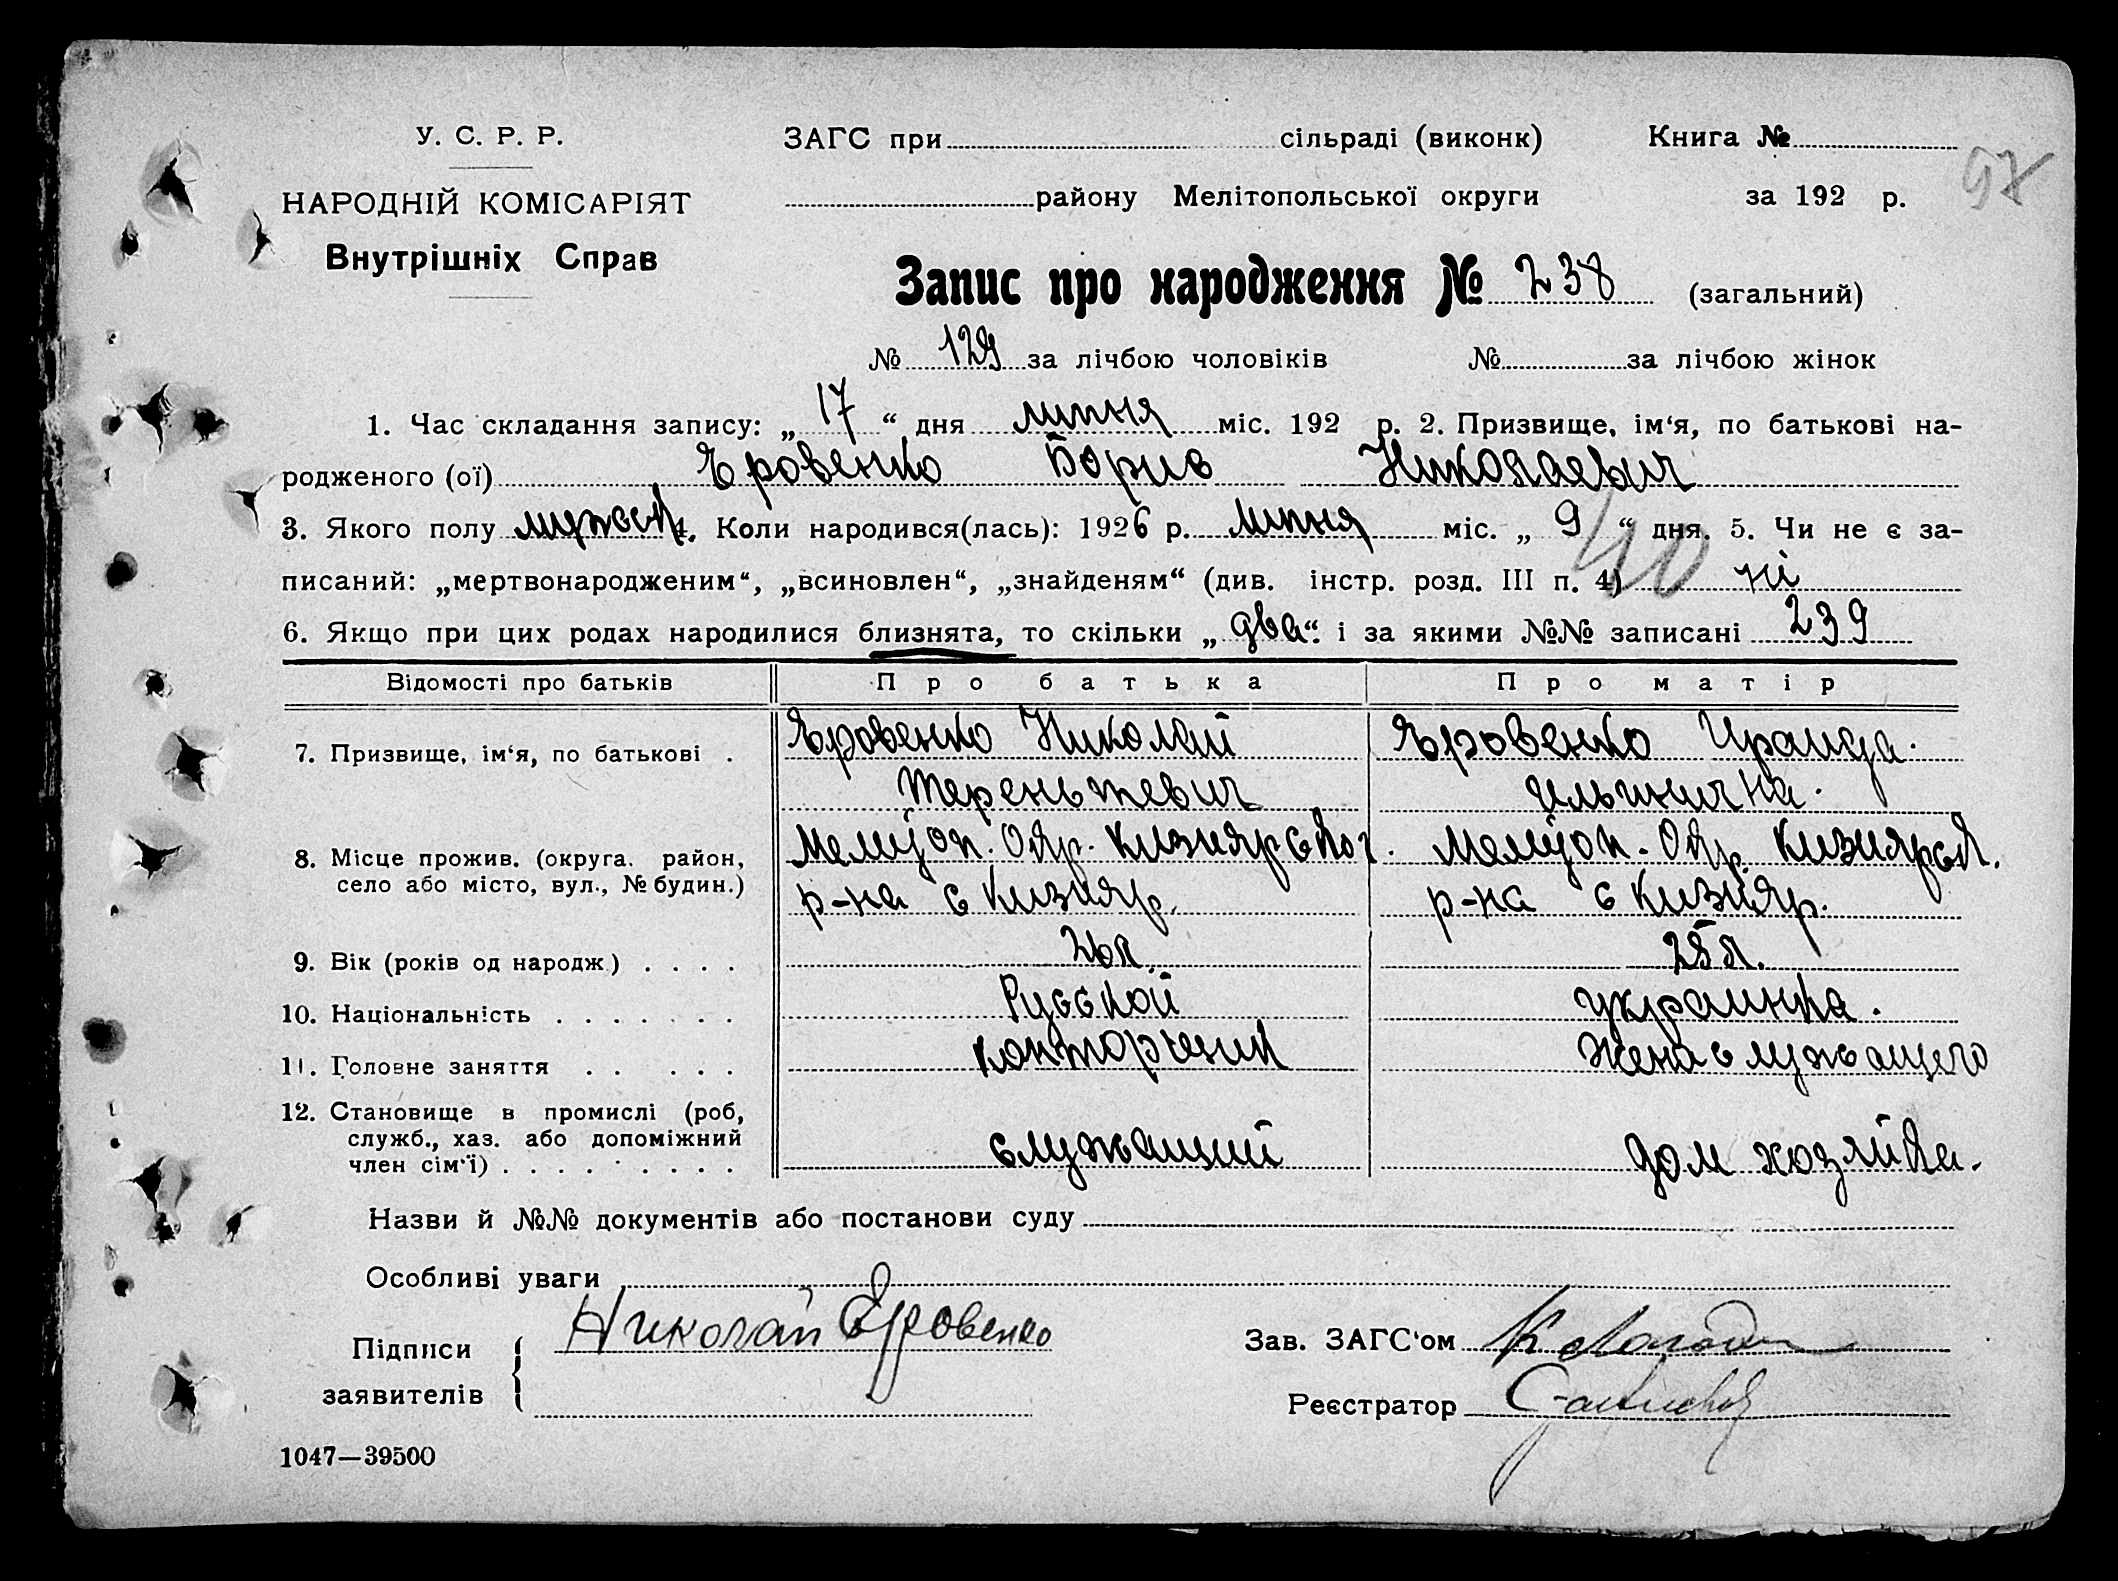 У. С. Р. Р.
ЗАГС при сільраді (виконк) Книга №
97
НАРОДНІЙ КОМІСАРІЯТ
району Мелітопольської округи за 192 р.
Внутрішніх Справ
Запис про народження № 238 (загальний)
№ 129 за лічбою чоловіків № за лічбою жінок
1. Час складання запису: „ 17 “ дня липня міс. 192 р. 2. Призвище, ім‘я, по батькові на-
родженого (ої) Еровенко Борис Николаевич
3. Якого полу мужск 4. Коли народився(лась): 1926 р. липня міс. „ 9 “ дня. 5. Чи не є за-
писаний: „мертвонародженим“, „всиновлен“, „знайденям“ (див. інстр. розд. III п. 4) ні
40
6. Якщо при цих родах народилися близнята, то скільки „ два “ і за якими №№ записані 239
Відомості про батьків Про батька Про матір
7. Призвище, ім‘я, по батькові . Еровенко Николай Еровенко Ираида.
Терентьевич Ильинична.
8. Місце прожив. (округа, район, Мелитоп. Окр. Кизиярског. Мелитоп. Окр. Кизиярск.
село або місто, вул., № будин.) р-на с Кизияр. р-на с Кизияр.
9. Вік (років од народж.) . . . . 26 л. 25 л.
10. Національність . . . . . . . Русской украинка.
11. Головне заняття . . . . . конторщик жена служащего
12. Становище в промислі (роб,
служб., хаз. або допоміжний служащий дом хозяйка.
член сім‘ї) . . . . . . . . .
Назви й №№ документів або постанови суду
Особливі уваги
Підписи заявителів Николай Еровенко
Зав. ЗАГС‘ом
Реєстратор
1047—39500